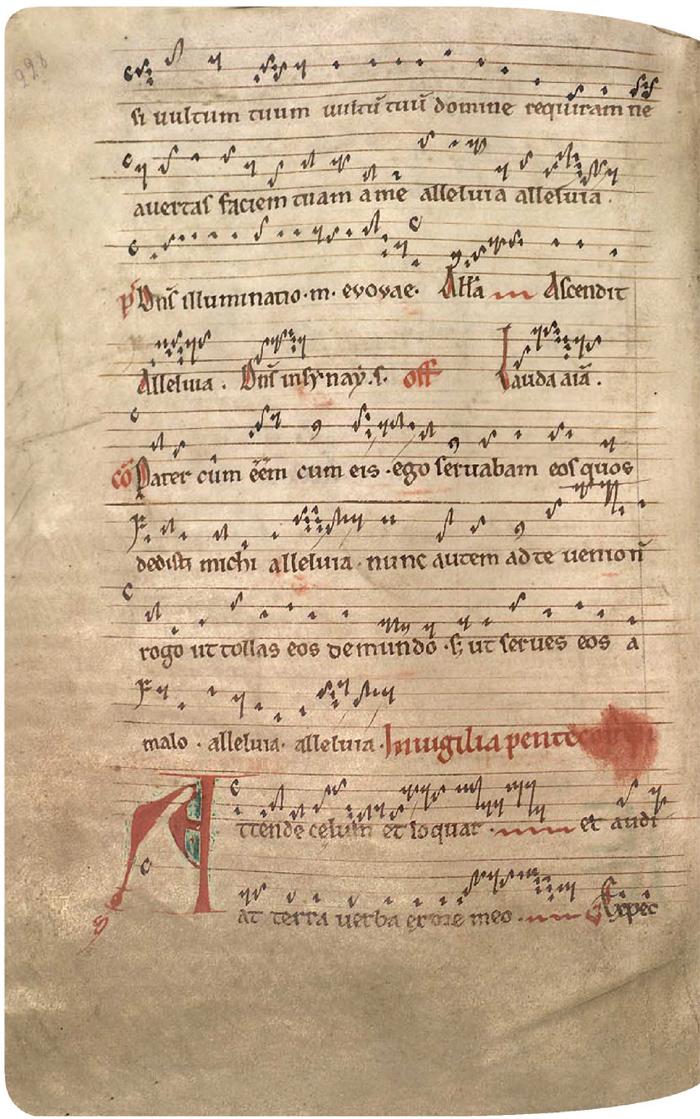 si uultum tuum uultū tuū domine requiram ne
auertas faciem tuam a me alleluia alleluia .
p̄ Dn̄s illuminatio · m · evovae · All̄a Ascendit
Alleluia . Dn̄s in synay . s . off Lauda aīa .
cō Pater cum ēēm cum eis · ego seruabam eos quos
dedisti michi alleluia · nunc autem ad te uenio n̄
rogo ut tollas eos de mundo · s; ut serues eos a
malo · alleluia · alleluia . In uigilia
Attende celum et loquar · et audi
at terra uerba ex ore meo · Exspec